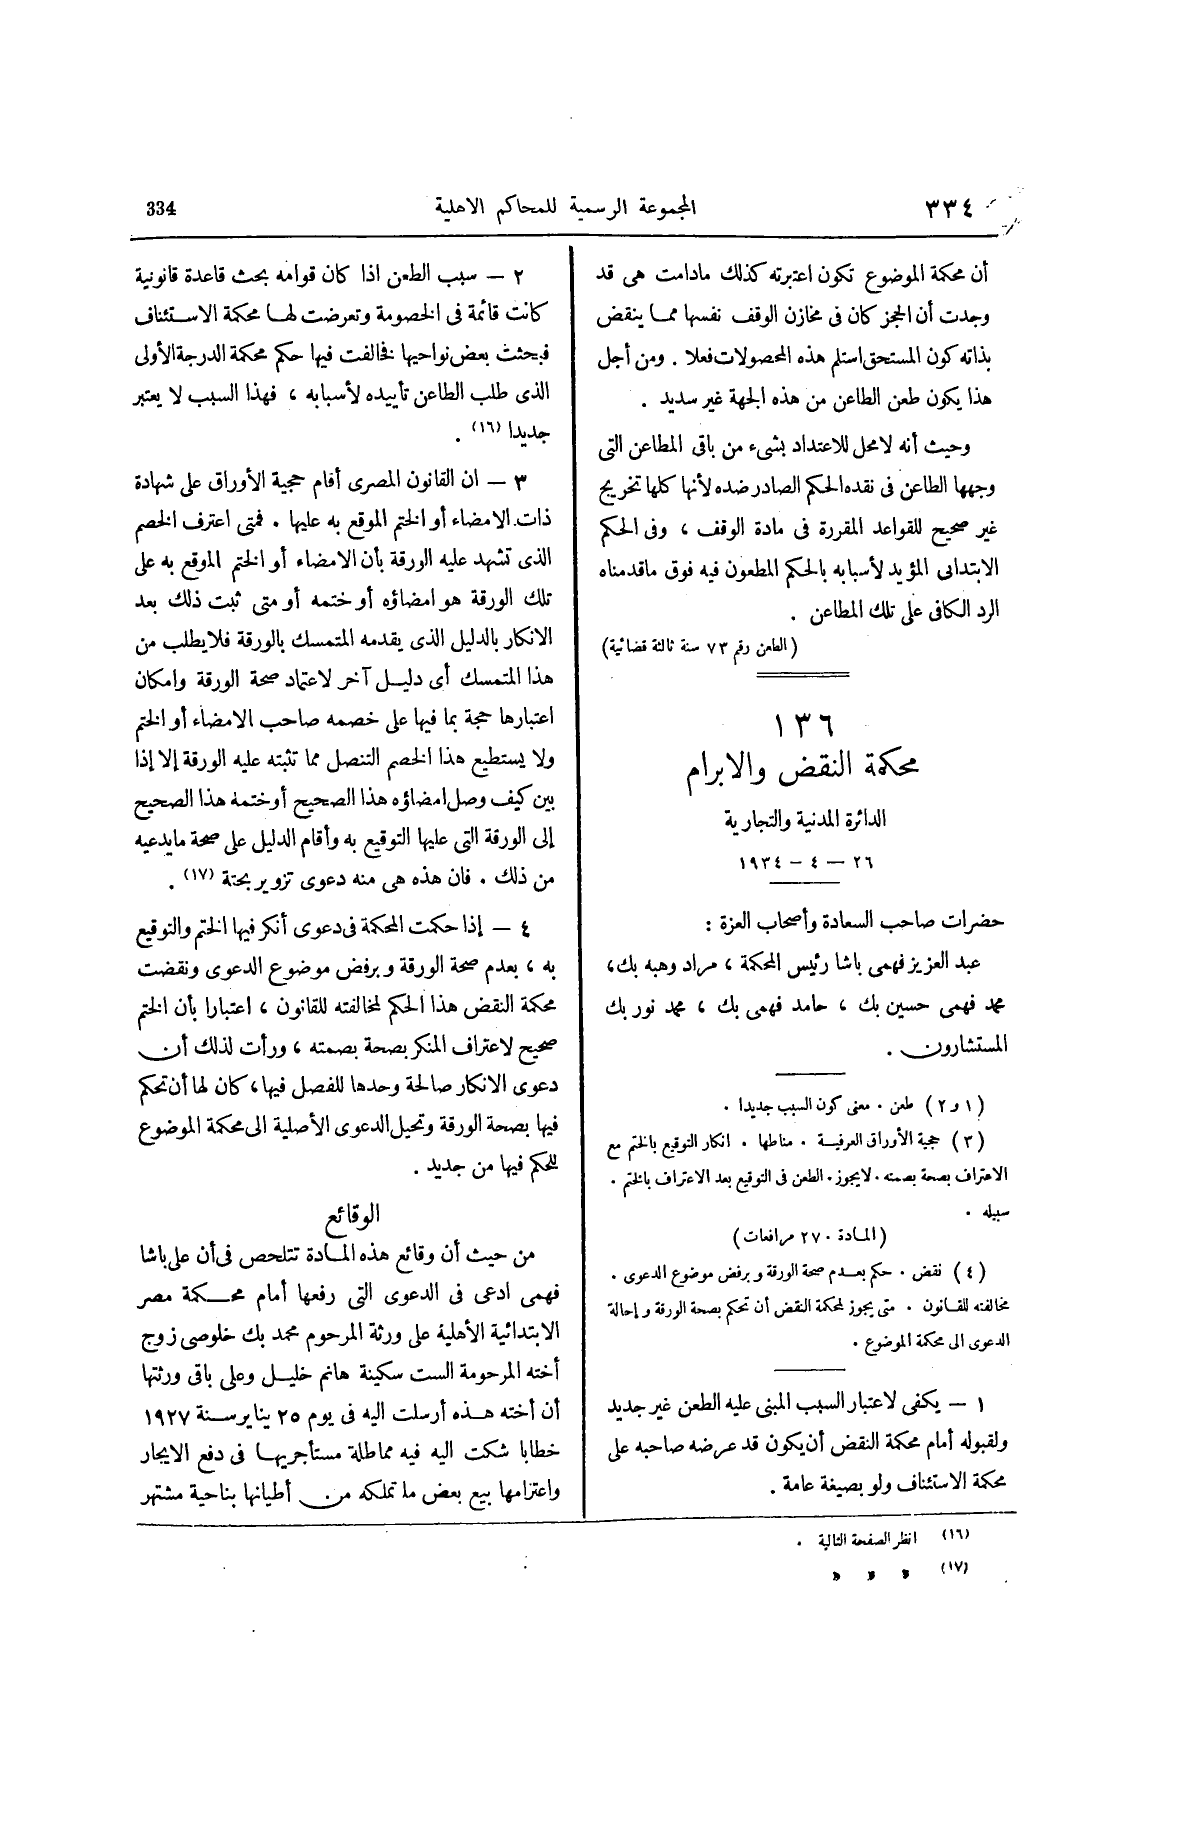 ٣٣٤
المجموعة الرسمية للمحاكم الاهلية
334
أن محكمة الموضوع تكون اعتبرته كذلك مادامت هى قد
وجدت أن الحجز كان فى مخازن الوقف نفسها مما ينقض
بذاته كون المستحق استلم هذه المحصولات فعلا . ومن أجل
هذا يكون طعن الطاعن من هذه الجهة غير سديد .
وحيث أنه لا محل للاعتداد بشىء من باقى المطاعن التى
وجهها الطاعن فى نقده الحكم الصادر ضده لأنها كلها تخريج
غير صحيح للقواعد المقررة فى مادة الوقف ، وفى الحكم
الابتدائى المؤيد لأسبابه بالحكم المطعون فيه فوق ماقدمناه
الرد الكافى على تلك المطاعن .
(الطعن رقم ٧٣ سنة ثالثة قضائية)
١٣٦
محكمة النقض والابرام
الدائرة المدنية والتجارية
٢٦ — ٤ — ١٩٣٤
حضرات صاحب السعادة وأصحاب العزة :
عبد العزيز فهمى باشا رئيس المحكمة ، مراد وهبه بك ،
محمد فهمى حسين بك ، حامد فهمى بك ، محمد نور بك
المستشارون .
(١ و ٢) طعن . معنى كون السبب جديدا .
(٣) حجية الأوراق العرفية . مناطها . انكار التوقيع بالختم مع
الاعتراف بصحة بصمته . لايجوز . الطعن فى التوقيع بعد الاعتراف بالختم .
سبيله .
(المادة ٢٧٠ مرافعات)
(٤) نقض . حكم بعدم صحة الورقة وبرفض موضوع الدعوى .
مخالفته للقانون . متى يجوز لمحكمة النقض أن تحكم بصحة الورقة وإحالة
الدعوى الى محكمة الموضوع .
١ — يكفى لاعتبار السبب المبنى عليه الطعن غير جديد
ولقبوله أمام محكمة النقض أن يكون قد عرضه صاحبه على
محكمة الاستئناف ولو بصيغة عامة .
٢ — سبب الطعن اذا كان قوامه بحث قاعدة قانونية
كانت قائمة فى الخصومة وتعرضت لها محكمة الاستئناف
فبحثت بعض نواحيها فخالفت فيها حكم محكمة الدرجة الأولى
الذى طلب الطاعن تأييده لأسبابه ، فهذا السبب لا يعتبر
جديدا (١٦) .
٣ — ان القانون المصرى أقام حجية الأوراق على شهادة
ذات الامضاء أو الختم الموقع به عليها . فمتى اعترف الخصم
الذى تشهد عليه الورقة بأن الامضاء أو الختم الموقع به على
تلك الورقة هو امضاؤه أو ختمه أو متى ثبت ذلك بعد
الانكار بالدليل الذى يقدمه المتمسك بالورقة فلا يطلب من
هذا المتمسك أى دليل آخر لاعتماد صحة الورقة وامكان
اعتبارها حجة بما فيها على خصمه صاحب الامضاء أو الختم
ولا يستطيع هذا الخصم التنصل مما تثبته عليه الورقة إلا إذا
بين كيف وصل امضاؤه هذا الصحيح أو ختمه هذا الصحيح
إلى الورقة التى عليها التوقيع به وأقام الدليل على صحة مايدعيه
من ذلك . فان هذه هى منه دعوى تزوير بحتة (١٧) .
٤ — إذا حكمت المحكمة فى دعوى أنكر فيها الختم والتوقيع
به ، بعدم صحة الورقة وبرفض موضوع الدعوى ونقضت
محكمة النقض هذا الحكم لمخالفته للقانون ، اعتبارا بأن الختم
صحيح لاعتراف المنكر بصحة بصمته ، ورأت لذلك أن
دعوى الانكار صالحة وحدها للفصل فيها ، كان لها أن تحكم
فيها بصحة الورقة وتحيل الدعوى الأصلية الى محكمة الموضوع
للحكم فيها من جديد .
الوقائع
من حيث أن وقائع هذه المادة تتلخص فى أن على باشا
فهمى ادعى فى الدعوى التى رفعها أمام محكمة مصر
الابتدائية الأهلية على ورثة المرحوم محمد بك خلوصى زوج
أخته المرحومة الست سكينة هانم خليل وعلى باقى ورثتها
أن أخته هذه أرسلت اليه فى يوم ٢٥ يناير سنة ١٩٢٧
خطابا شكت اليه فيه مماطلة مستأجريها فى دفع الايجار
واعتزامها بيع بعض ما تملكه من أطيانها بناحية مشتهر
(١٦) انظر الصفحة التالية .
(١٧) » » »